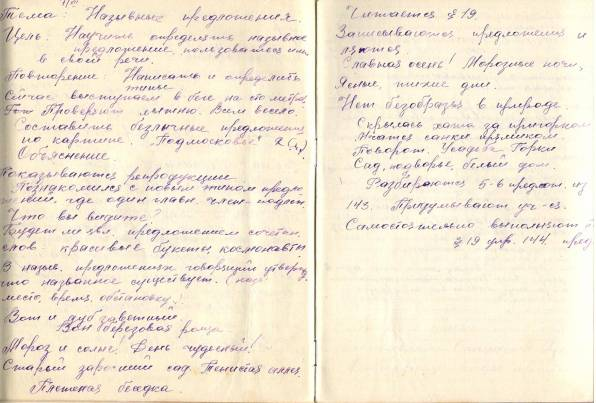 Тема: Назывные предложения.
Цель: Научить определять назывные
предложения, пользоваться ими
в своей речи.
Повторение: Написать и определить
Сейчас выступаем в беге на сто метров.
Проверяют лыжню. Всем весело.
Составить безличные предложения
по картине Подмосковье
Объяснение
Показываются репродукции
Познакомимся с новым типом предло-
жений, где один главн. член - подлеж.
Что вы видите?
Будет ли цел. предложением сочетан.
слов красивые букеты, космонавты
В назыв. предложениях говорящий утвержд.
что названное существует. (
место, время, обстановку.
Вот и дуб заветный
Вон берёзовая роща
Мороз и солнце. День чудесный!
Старый заросший сад. Тенистая аллея.
Плетеная беседка.
Читается § 19
Записываются предложения и
Славная осень! Морозные ночи,
Ясные, тихие дни.
Нет безобразья в природе.
Скрылась хата за пригорком
Мчатся санки прямиком
Поворот. Усадьба Горки
Сад, подворье, белый дом.
Разбираются 5-6 предлож. из
143. Придумывают уч-ся.
Самостоятельно выполняют
§ 19 упр. 144 пред